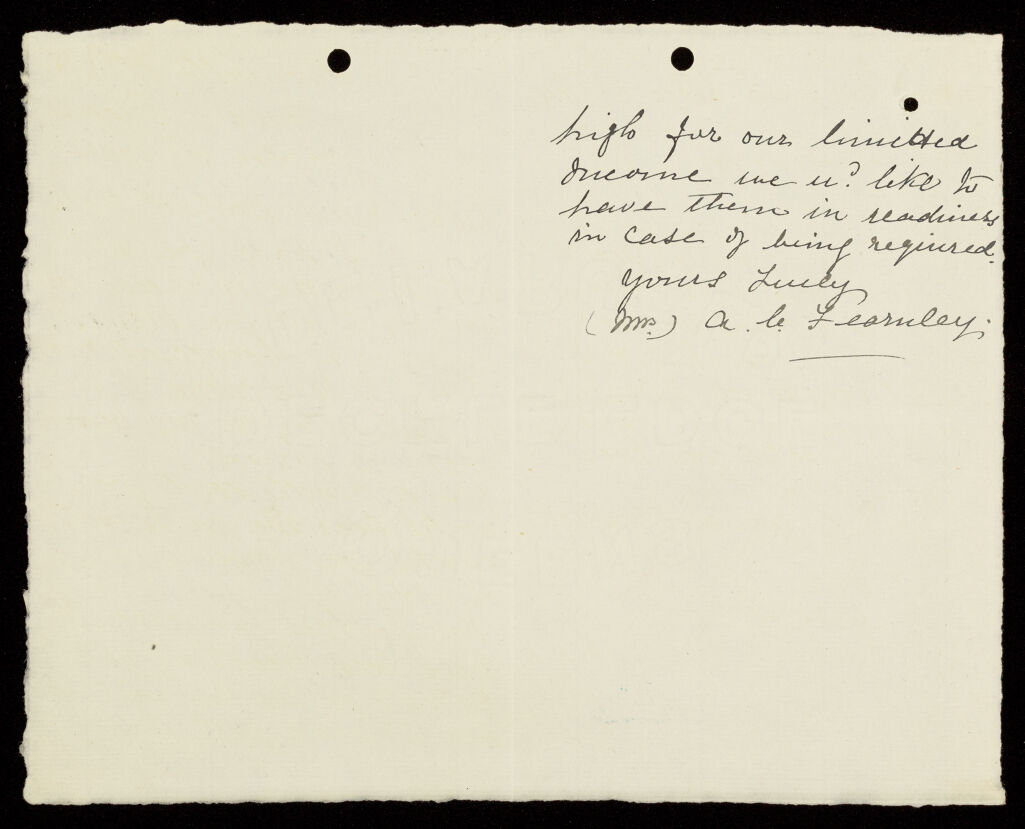 high for our limitted
income we wd. like to
have them in readiness
in case of being required.
Yours truly
(Mrs.) A. C. Fearnley.